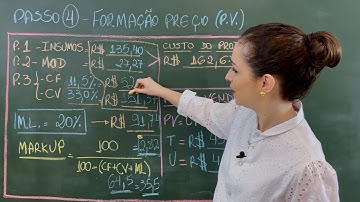 PASSO 4 - FORMAÇÃO PREÇO (P.V.)
P.1 - INSUMOS = R$ 135,40
P.2 - MOD = R$ 27,27
P.3 - CF 11,5% R$
- CV 33,0% R$
M.L. = 20% → R$ 91,74
MARKUP = 100 = 2,82
100 - (CF+CV+ML)
64,5 = 35,5
CUSTO DO
R$ 162,6
PV =
T = R$
U = R$